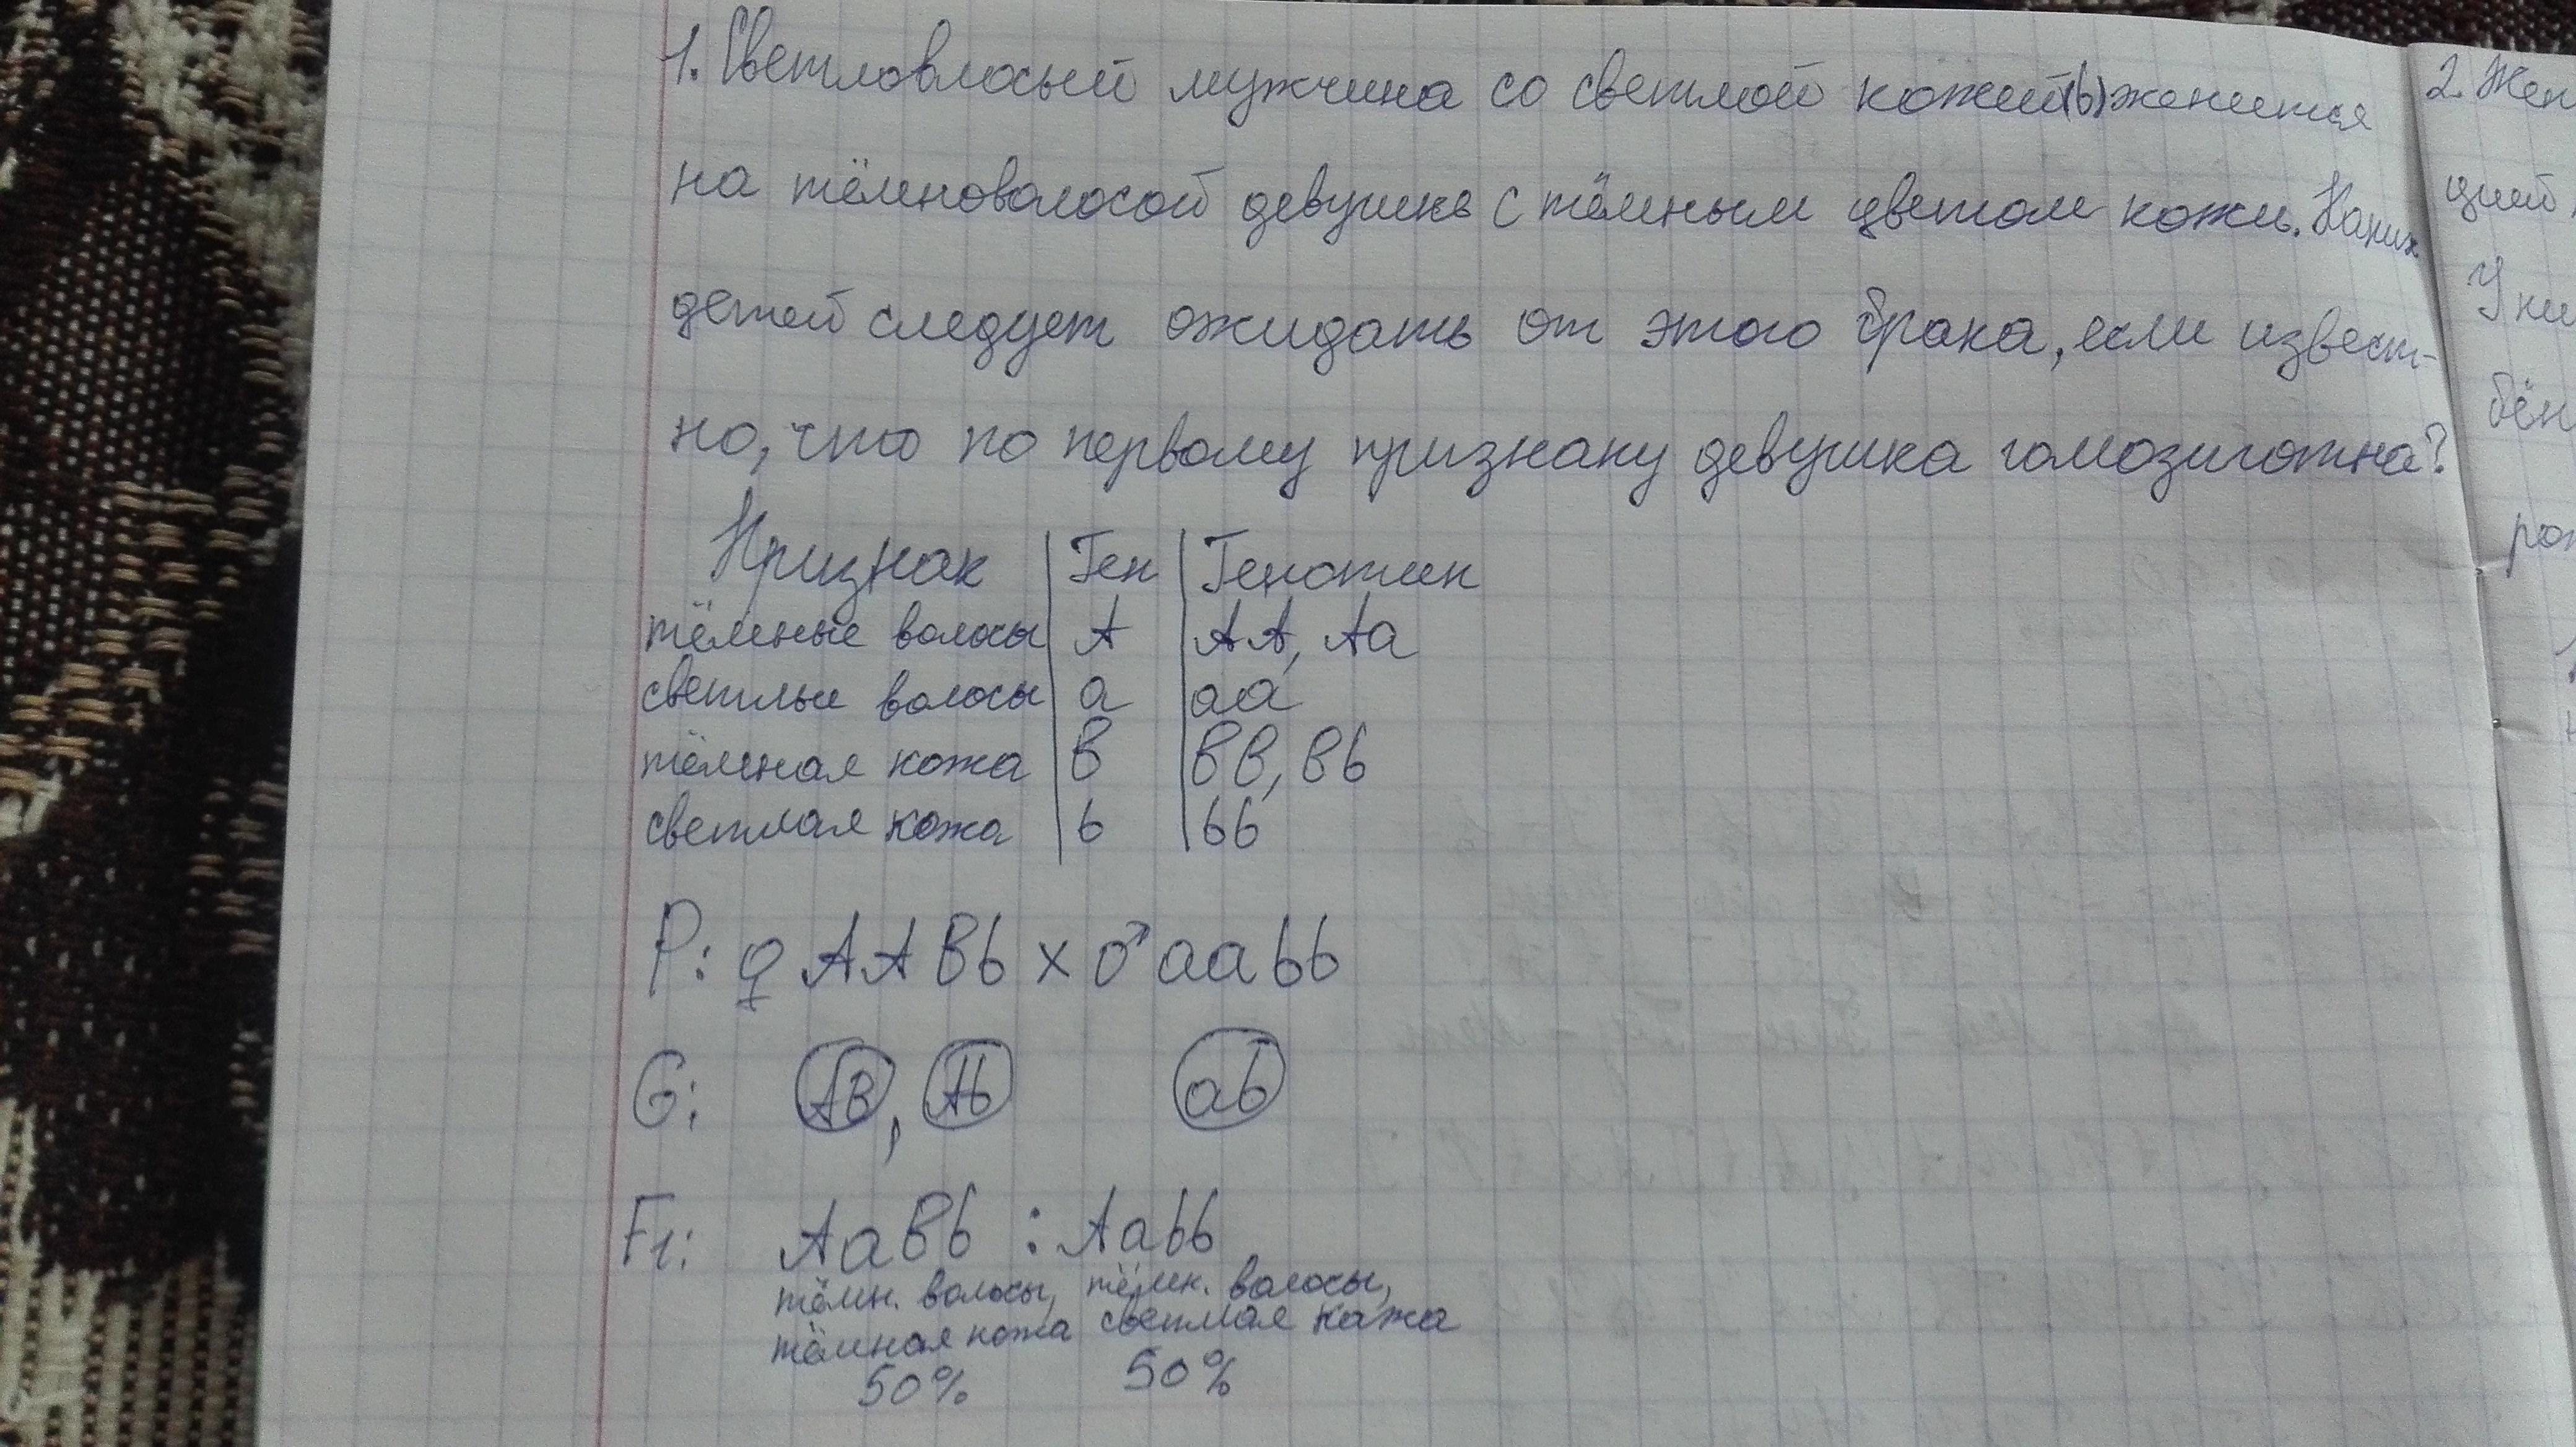 1. Светловлосый мужчина со светлой кожей(b) женится
на тёмноволосой девушке с тёмным цветом кожи. Каких
детей следует ожидать от этого брака, если извест-
но, что по первому признаку девушка гомозиготна?
Признак | Ген | Генотип
тёмные волосы | A | AA, Aa
светлые волосы | a | aa
тёмная кожа | B | BB, Bb
светлая кожа | b | bb
P: ♀ AABb x ♂ aabb
G: AB, Ab ab
F1: AaBb : Aabb
тёмн. волосы, тёмн. волосы,
тёмная кожа светлая кажа
50% 50%
2. Жен
цией
У ни
бён